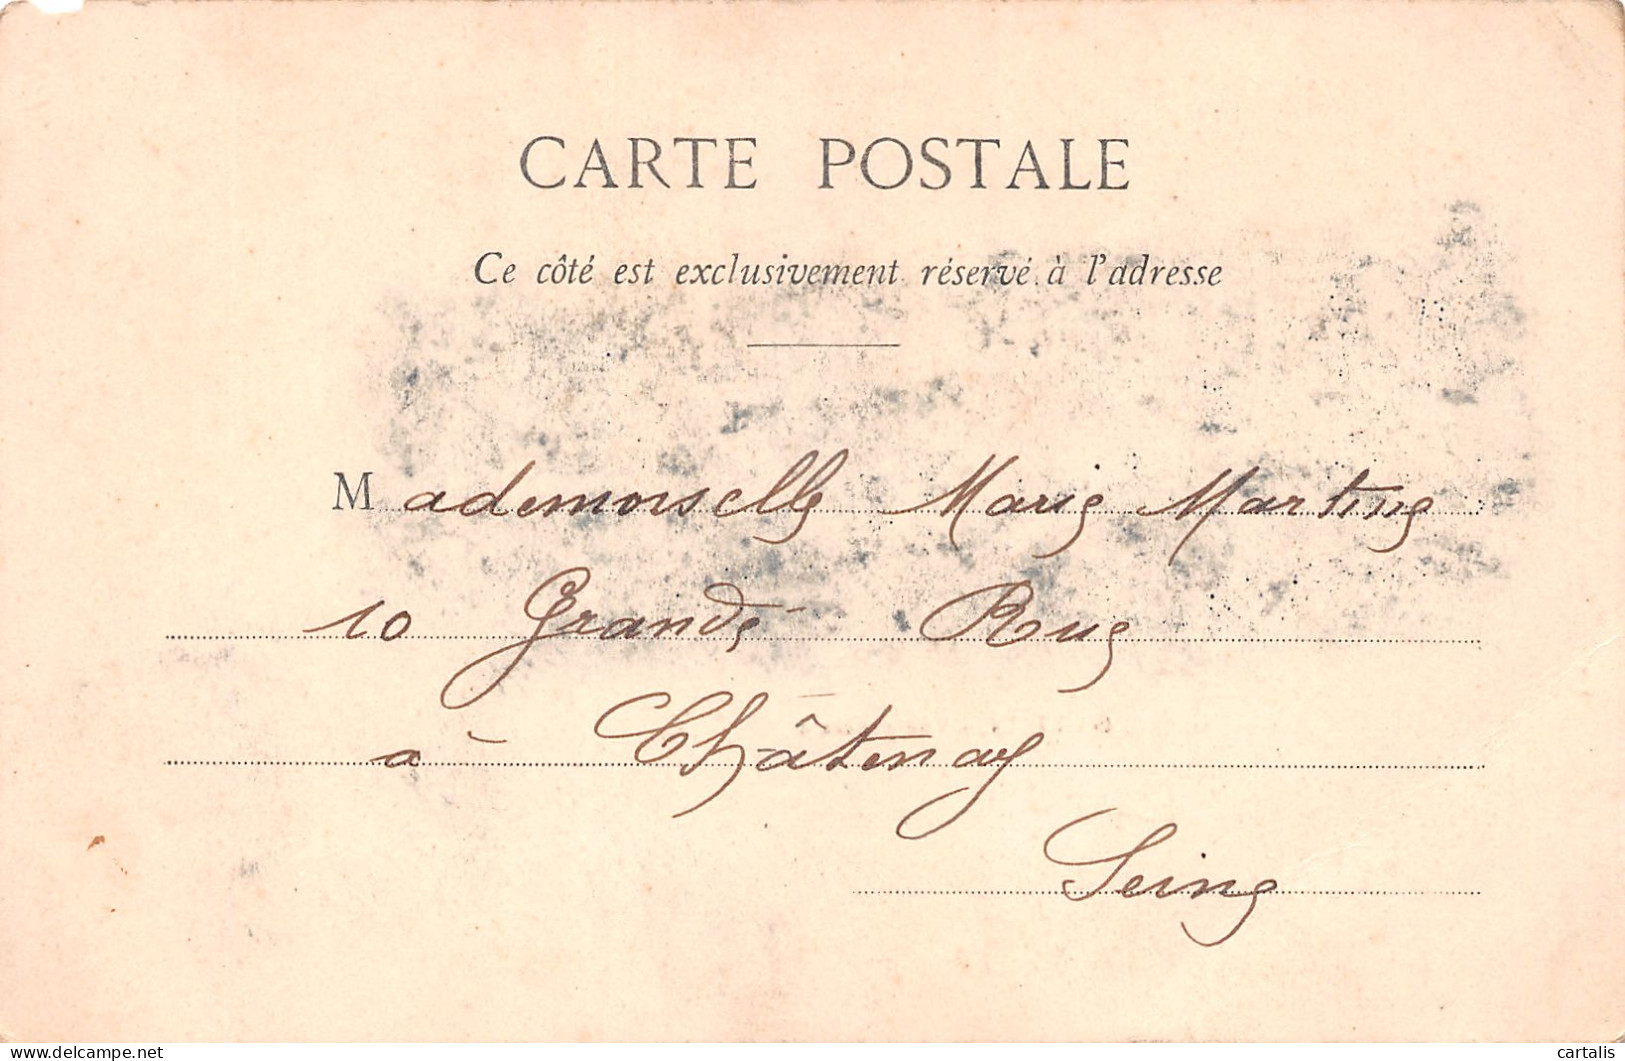 CARTE POSTALE
Ce côté est exclusivement réservé à l'adresse
Mademoiselle Marie Martine
10 Grande Rue
à Châtenay
Seine
delcampe.net
cartalis